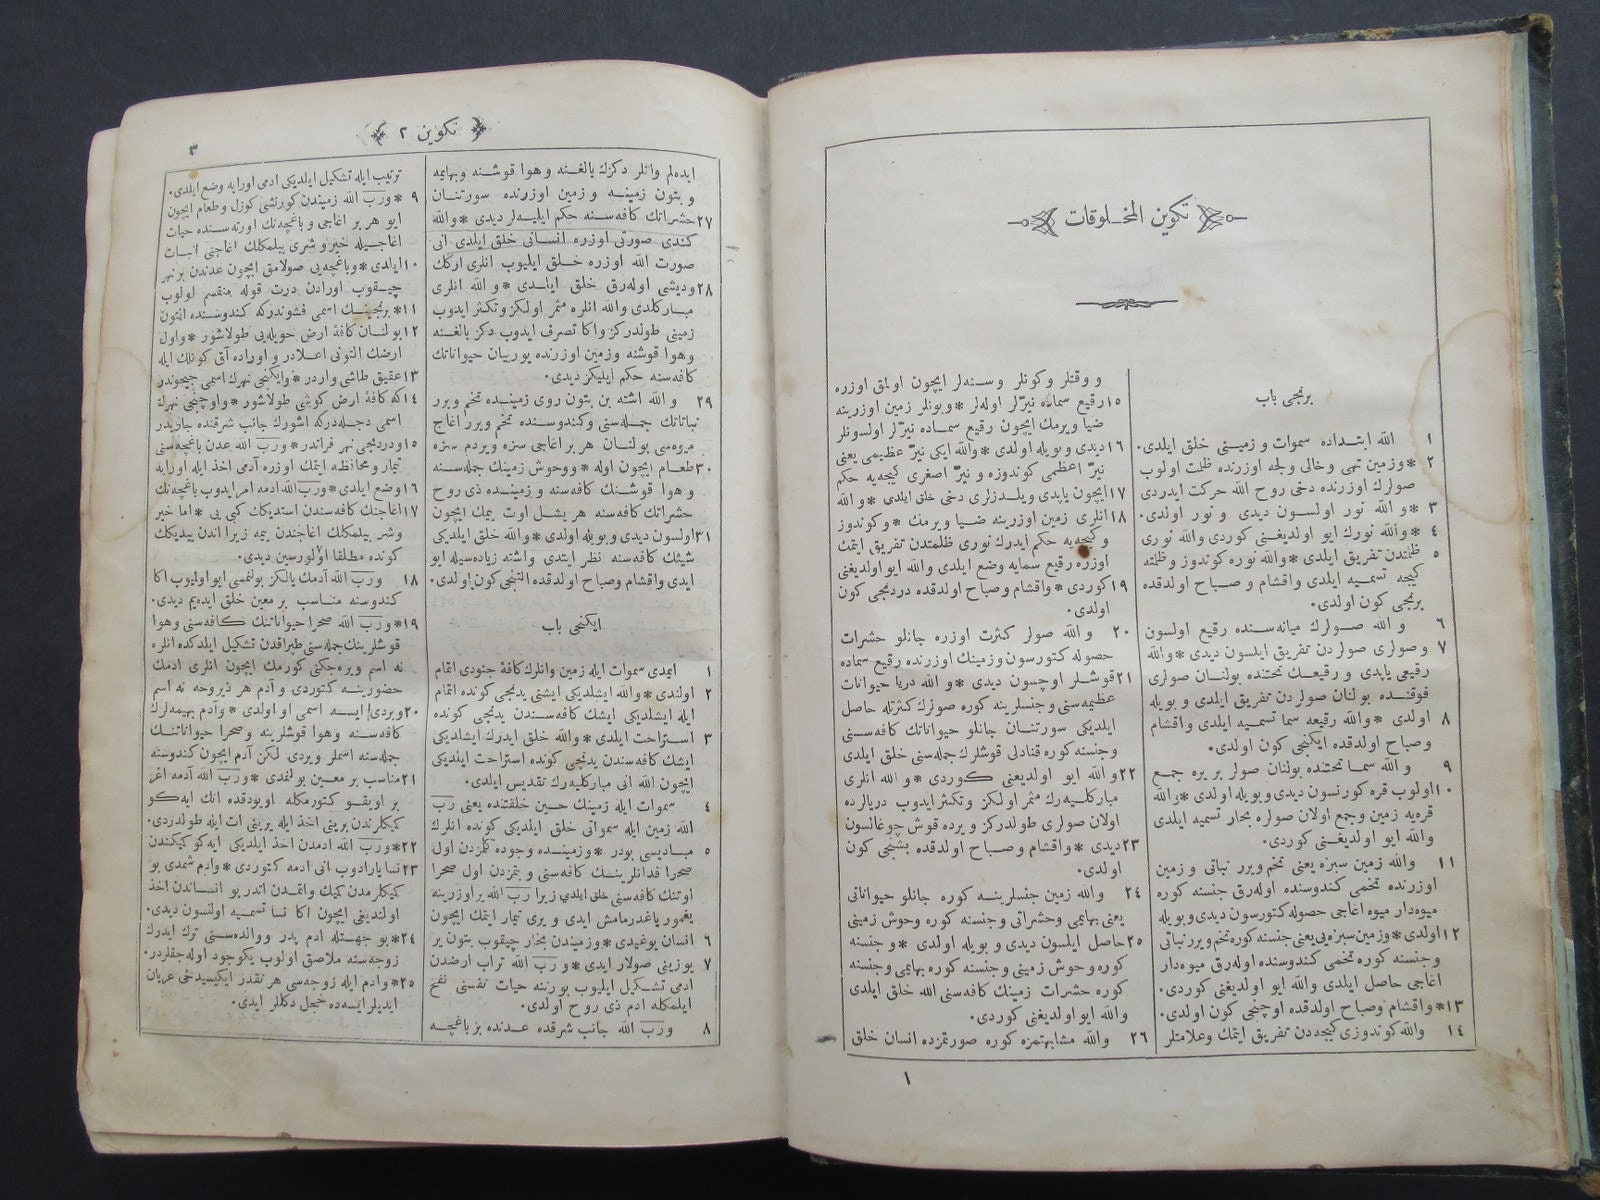 تكوين المخلوقات
برنجی باب
١ الله ابتداده سموات و زمینی خلق ایلدی.
٢ *وزمین تهی وخالی ولجه اوزرنده ظلمت اولوب
صولرك اوزرنده دخی روح الله حركت ایدردی
٣ *و الله نور اولسون دیدی و نور اولدی.
٤ *والله نورك ایو اولدیغنی كوردی والله نوری
٥ ظلمتدن تفریق ایلدی *والله نوره كوندوز وظلمته
كیجه تسمیه ایلدی واقشام و صباح اولدقده
برنجی كون اولدی.
٦ و الله صولرك میانه سنده رقیع اولسون
٧ و صولری صولردن تفریق ایلسون دیدی *والله
رقیعی یاپدی و رقیعك تحتنده بولنان صولری
فوقنده بولنان صولردن تفریق ایلدی و بویله
٨ اولدی *والله رقیعه سما تسمیه ایلدی واقشام
وصباح اولدقده ایكنجی كون اولدی.
٩ و الله سما تحتنده بولنان صولر بر یره جمع
١٠ اولوب قره كورنسون دیدی و بویله اولدی *والله
قره‌یه زمین وجمع اولان صولره بحار تسمیه ایلدی
والله ایو اولدیغنی كوردی.
١١ والله زمین سبزه یعنی تخم ویرر نباتی و زمین
اوزرنده تخمی كندوسنده اوله‌رق جنسنه كوره
میوه‌دار میوه اغاجی حصوله كتورسون دیدی وبویله
١٢ اولدی *وزمین سبزه‌یی یعنی جنسنه كوره تخم ویرر نباتی
و جنسنه كوره تخمی كندوسنده اوله‌رق میوه‌دار
اغاجی حاصل ایلدی والله ایو اولدیغنی كوردی.
١٣ *واقشام وصباح اولدقده اوچنجی كون اولدی.
١٤ والله كوندوزی كیجه‌دن تفریق ایتمك وعلامتلر
و وقتلر وكونلر وسنه‌لر ایچون اولمق اوزره
١٥ رقیع سماده نیّرلر اوله‌لر *وبونلر زمین اوزرینه
ضیا ویرمك ایچون رقیع سماده نیّرلر اولسونلر
١٦ دیدی و بویله اولدی *والله ایكی نیّر عظیمی یعنی
نیّر اعظمی كوندوزه و نیّر اصغری كیجه‌یه حكم
١٧ ایچون یاپدی ویلدزلری دخی خلق ایلدی *والله
١٨ انلری زمین اوزرینه ضیا ویرمك *وكوندوز
و كیجه‌یه حكم ایدرك نوری ظلمتدن تفریق ایتمك
اوزره رقیع سمایه وضع ایلدی والله ایو اولدیغنی
١٩ كوردی *واقشام وصباح اولدقده دردنجی كون
اولدی.
٢٠ و الله صولر كثرت اوزره جانلو حشرات
حصوله كتورسون وزمینك اوزرنده رقیع سماده
٢١ قوشلر اوچسون دیدی *و الله دریا حیوانات
عظیمه‌سنی وجنسلرینه كوره صولرك كثرتله حاصل
ایلدیكی سورتنان جانلو حیواناتك كافه‌سنی
وجنسنه كوره قنادلی قوشلرك جمله‌سنی خلق ایلدی
٢٢ والله ایو اولدیغنی كوردی *والله انلری
مباركلیه‌رك مثمر اولكز وتكثر ایدوب دریالرده
اولان صولری طولدركز و یرده قوش چوغالسون
٢٣ دیدی *واقشام وصباح اولدقده بشنجی كون
اولدی.
٢٤ والله زمین جنسلرینه كوره جانلو حیواناتی
یعنی بهایمی وحشراتی وجنسنه كوره وحوش زمینی
٢٥ حاصل ایلسون دیدی و بویله اولدی *وجنسنه
كوره وحوش زمینی و جنسنه كوره بهایمی وجنسنه
كوره حشرات زمینك كافه‌سنی الله خلق ایلدی
والله ایو اولدیغنی كوردی.
٢٦ والله مشابهتمزه كوره صورتمزده انسان خلق
١
تكوین ٢
٣
ایده‌لم وانلر دكزك بالغنه وهوا قوشنه وبهایمه
و بتون زمینه و زمین اوزرنده سورتنان
٢٧ حشراتك كافه‌سنه حكم ایلیه‌لر دیدی *والله
كندی صورتی اوزره انسانی خلق ایلدی انی
صورت الله اوزره خلق ایلیوب انلری اركك
٢٨ ودیشی اوله‌رق خلق ایلدی *و الله انلری
مباركلدی والله انلره مثمر اولكز وتكثر ایدوب
زمینی طولدركز واكا تصرف ایدوب دكز بالغنه
وهوا قوشنه وزمین اوزرنده یوریان حیواناتك
كافه‌سنه حكم ایلیكز دیدی.
٢٩ و الله اشته بن بتون روی زمینده تخم ویرر
نباتاتك جمله‌سنی وكندوسنده تخم ویرر اغاج
میوه‌سی بولنان هر بر اغاجی سزه ویردم سزه
٣٠ طعام ایچون اوله *ووحوش زمینك جمله‌سنه
و هوا قوشنك كافه‌سنه و زمینده ذی روح
حشراتك كافه‌سنه هر یشل اوت ییمك ایچون
٣١ اولسون دیدی وبویله اولدی *والله خلق ایلدیكی
شیئك كافه‌سنه نظر ایتدی واشته زیاده‌سیله ایو
ایدی واقشام وصباح اولدقده التنجی كون اولدی.
ایكنجی باب
١ ایمدی سموات ایله زمین وانلرك كافهٔ جنودی اتمام
٢ اولندی *والله ایشلدیكی ایشنی یدنجی كونده اتمام
ایله ایشلدیكی ایشك كافه‌سندن یدنجی كونده
٣ استراحت ایلدی *والله خلق ایدرك ایشلدیكی
ایشك كافه‌سندن یدنجی كونده استراحت ایلدیكی
ایچون الله انی مباركلیه‌رك تقدیس ایلدی.
٤ سموات ایله زمینك حین خلقتنده یعنی رب
الله زمین ایله سمواتی خلق ایلدیكی كونده انلرك
٥ مبادیسی بودر *وزمینده وجوده كلمزدن اول
صحرا فدانلرینك كافه‌سنی و بتمزدن اول صحرا
اوتنك كافه‌سنی خلق ایلدی زیرا رب الله یر اوزرینه
یغمور یاغدرمامش ایدی و یری تیمار ایتمك ایچون
٦ انسان یوغیدی *وزمیندن بخار چیقوب بتون یر
٧ یوزینی صولار ایدی *و رب الله تراب ارضدن
ادمی تشكیل ایلیوب بورننه حیات نفسنی نفخ
ایلمكله ادم ذی روح اولدی.
٨ ورب الله جانب شرقده عدنده بر باغچه
ترتیب ایله تشكیل ایلدیكی ادمی اورایه وضع ایلدی.
٩ *ورب الله زمیندن كورنشی كوزل و طعام ایچون
ایو هر بر اغاجی و باغچه‌نك اورته‌سنده حیات
اغاجیله خیر و شری بیلمكلك اغاجنی انبات
١٠ ایلدی *وباغچه‌یی صولامق ایچون عدندن بر نهر
چیقوب اورادن درت قوله منقسم اولوب
١١ *برنجینك اسمی فشوندركه كندوسنده التون
١٢ بولنان كافهٔ ارض حویله‌یی طولاشور *واول
ارضك التونی اعلادر و اوراده آق كونلك ایله
١٣ عقیق طاشی واردر *وایكنجی نهرك اسمی جیحوندر
١٤ كه كافهٔ ارض كوشی طولاشور *واوچنجی نهرك
اسمی دجله‌دركه اشورك جانب شرقنده جاریدر
١٥ ودردنجی نهر فراتدر *ورب الله عدن باغچه‌سنی
تیمار و محافظه ایتمك اوزره آدمی اخذ ایله اورایه
١٦ وضع ایلدی *ورب الله ادمه امر ایدوب باغچه‌نك
١٧ اغاجنك كافه‌سندن استدیكك كبی یی *اما خیر
وشر بیلمكلك اغاجندن ییمه زیرا اندن ییدیكك
كونده مطلقا اولورسین دیدی.
١٨ ورب الله آدمك یالكز بولنمسی ایو اولمیوب اكا
كندوسنه مناسب بر معین خلق ایده‌یم دیدی.
١٩ *ورب الله صحرا حیواناتنك كافه‌سنی وهوا
قوشلرینك جمله‌سنی طپراقدن تشكیل ایلدكده انلره
نه اسم ویره‌جكنی كورمك ایچون انلری ادمك
حضورینه كتوردی و آدم هر ذیروحه نه اسم
٢٠ ویردی ایسه اسمی او اولدی *وآدم بهیمه‌لرك
كافه‌سنه وهوا قوشلرینه وصحرا حیواناتنك
جمله‌سنه اسملر ویردی لكن آدم ایچون كندوسنه
٢١ مناسب بر معین بولنمدی *ورب الله آدمه اغر
بر اویقو كتورمكله اویودقده انك ایه‌كو
كیكلرندن برینی اخذ ایله یرینی ات ایله طولدردی.
٢٢ *ورب الله ادمدن اخذ ایلدیكی ایه‌كو كیكندن
٢٣ نسا یارادوب انی ادمه كتوردی *وادم شمدی بو
كیكلرمدن كیك واتمدن اتدر بو انساندن اخذ
اولندیغی ایچون اكا نسا تسمیه اولنسون دیدی.
٢٤ *بو جهتله ادم پدر ووالده‌سنی ترك ایدرك
زوجه‌سنه ملاصق اولوب یكوجود اوله‌جقلردر.
٢٥ *وادم ایله زوجه‌سی هر نقدر ایكیسیدخی عریان
ایدیلر ایسه‌ده خجل دكللر ایدی.